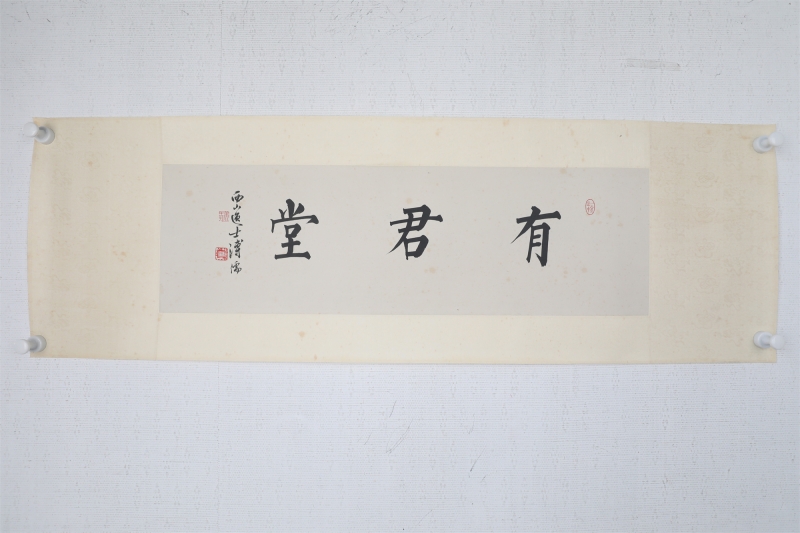 有君堂
西山逸士溥儒